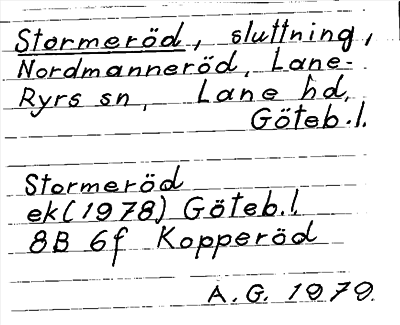 Stormeröd, sluttning,
Nordmanneröd, Lane-
Ryrs sn, Lane hd,
Göteb.l.
Stormeröd
ek(1978) Göteb.l.
8B 6f Kopperöd
A.G. 1979.